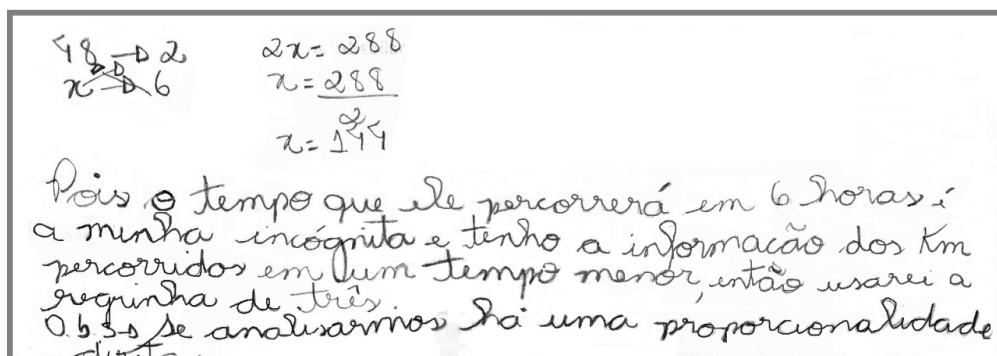 48 → 2
x → 6
2x = 288
x = 288
2
x = 144
Pois o tempo que ele percorrerá em 6 horas é
a minha incógnita e tenho a informacão dos Km
percorridos em um tempo menor, então usarei a
regrinha de três.
O.b.s → se analisarmos há uma proporcionalidade